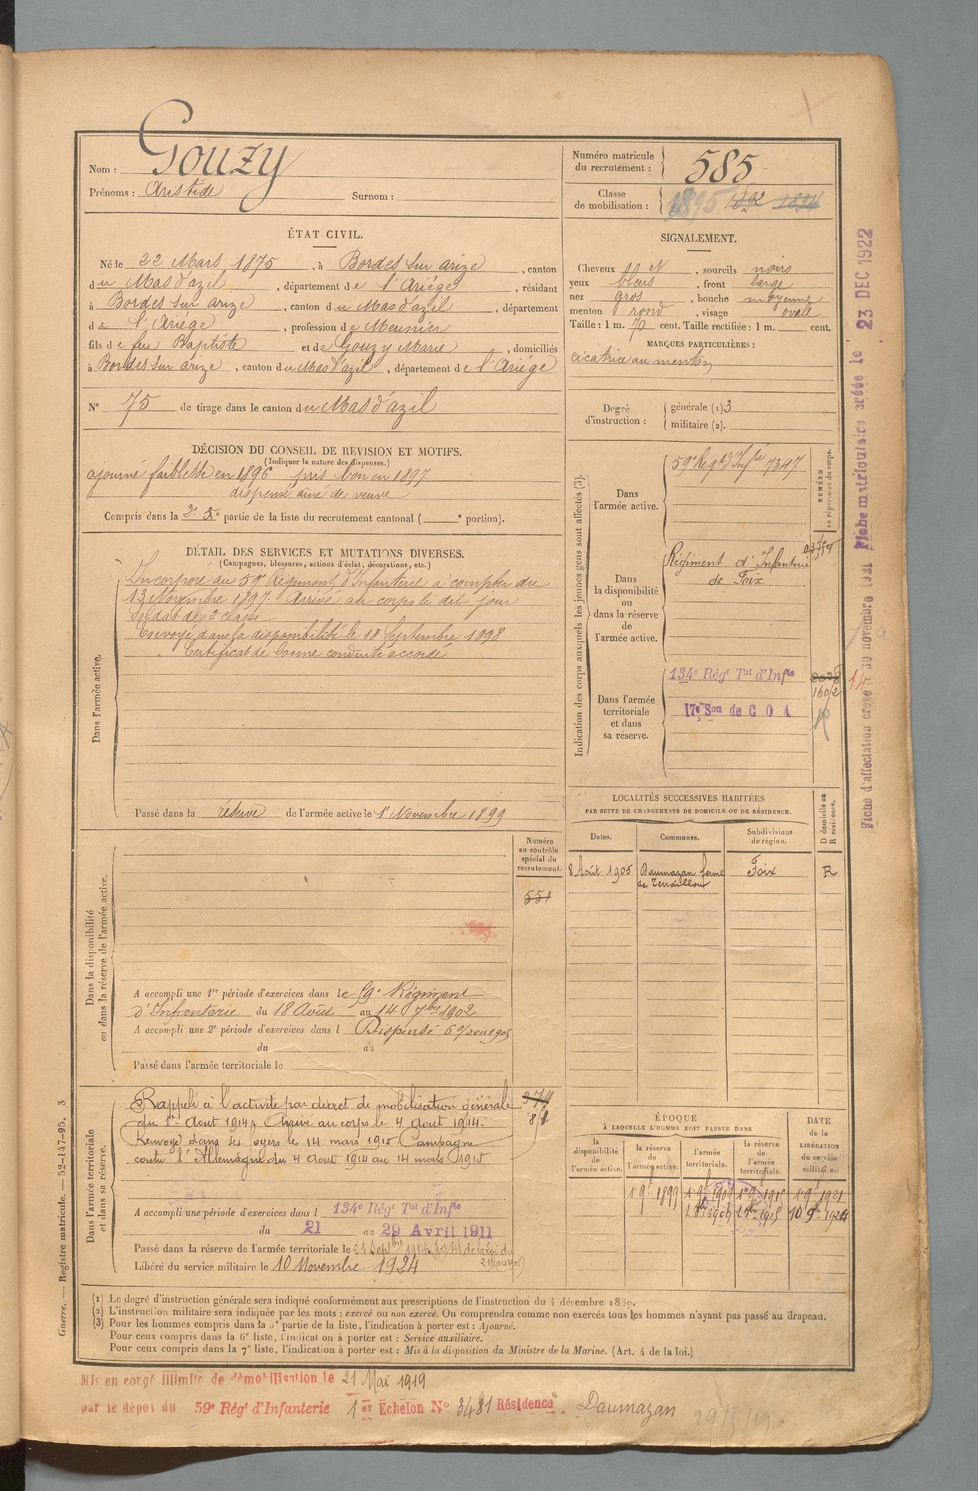 Nom : Gouzy
Prénoms : Aristide Surnom :
Numéro matricule du recrutement : 585
Classe de mobilisation : 1895 1892
ÉTAT CIVIL.
Né le 22 Mars 1875, à Bordes sur arize, canton
du Mas d'azil, département de l'Ariège, résidant
à Bordes sur arize, canton du Mas d'azil, département
de l'Ariége, profession de Meunier
fils de feu Baptiste et de Gouzy Marie, domiciliés
à Bordes sur arize, canton du Mas d'azil, département de l'Ariége
N° 75 de tirage dans le canton du Mas d'azil
DÉCISION DU CONSEIL DE REVISION ET MOTIFS.
(Indiquer la nature des dispenses.)
ajourné faiblesse en 1896 pris bon en 1897
dispensé ainé de veuve
Compris dans la 2e partie de la liste du recrutement cantonal ( e portion).
SIGNALEMENT.
Cheveux N, sourcils noirs
yeux bleus, front large
nez gros, bouche moyenne
menton rond, visage ovale
Taille : 1 m. 70 cent. Taille rectifiée : 1 m. cent.
MARQUES PARTICULIÈRES :
cicatrice au menton
Degré d'instruction : générale (1) 3
militaire (2).
DÉTAIL DES SERVICES ET MUTATIONS DIVERSES.
(Campagnes, blessures, actions d'éclat, décorations, etc.)
Dans l'armée active.
Incorporé au 59e Régiment d'Infanterie à compter du
13 Novembre 1897. Arrivé au corps le dit jour
Soldat de 2e classe
Envoyé dans la disponibilité le 18 Septembre 1898
Certificat de bonne conduite accordé
Passé dans la réserve de l'armée active le 1er Novembre 1899
Indication des corps auxquels les jeunes gens sont affectés (3).
NUMÉRO au répertoire du corps.
Dans l'armée active.
59e Régt d'Infie 7347
Dans la disponibilité ou dans la réserve de l'armée active.
Régiment d'Infanterie
de Foix
Dans l'armée territoriale et dans sa réserve.
134e Régt Tal d'Infie
17e Son de C O A
1602
LOCALITÉS SUCCESSIVES HABITÉES
PAR SUITE DE CHANGEMENTS DE DOMICILE OU DE RÉSIDENCE.
Dates. Communes. Subdivisions de région. D domicile ou R résidence.
8 Août 1905 Daumazan ferme Foix R
Numéro au contrôle spécial du recrutement.
551
Dans la disponibilité ou dans la réserve de l'armée active.
A accompli une 1re période d'exercices dans le 59e Régiment
d'Infanterie du 18 Août au 14 7bre 1902
A accompli une 2e période d'exercices dans l Dispensé
du au
Passé dans l'armée territoriale le
Dans l'armée territoriale et dans sa réserve.
Rappelé à l'activité par décret de mobilisation générale
du 1er Aout 1914, Arrivé au corps le 4 Aout 1914.
Renvoyé dans ses foyers le 14 mars 1915 Campagne
contre l'Allemagne du 4 Aout 1914 au 14 mars 1915
A accompli une période d'exercices dans l 134e Régt Tal d'Infie
du 21 au 29 Avril 1911
Passé dans la réserve de l'armée territoriale le
Libéré du service militaire le 10 Novembre 1924
ÉPOQUE
À LAQUELLE L'HOMME DOIT PASSER DANS
DATE de la LIBÉRATION du service militaire.
la disponibilité de l'armée active. la réserve de l'armée active. l'armée territoriale. la réserve de l'armée territoriale.
(1) Le degré d'instruction générale sera indiqué conformément aux prescriptions de l'instruction du 4 décembre 1889.
(2) L'instruction militaire sera indiquée par les mots : exercé ou non exercé. On comprendra comme non exercés tous les hommes n'ayant pas passé au drapeau.
(3) Pour les hommes compris dans la 5e partie de la liste, l'indication à porter est : Ajourné.
Pour ceux compris dans la 6e liste, l'indication à porter est : Service auxiliaire.
Pour ceux compris dans la 7e liste, l'indication à porter est : Mis à la disposition du Ministre de la Marine. (Art. 4 de la loi.)
Mis en congé illimité de démobilisation le 21 Mai 1919
par le dépôt du 59e Régt d'Infanterie 1er Echelon N° 3481 Résidence Daumazan
Guerre. — Registre matricule. — 52-147-95. 3
Fiche matriculaire créée le 23 DEC 1922